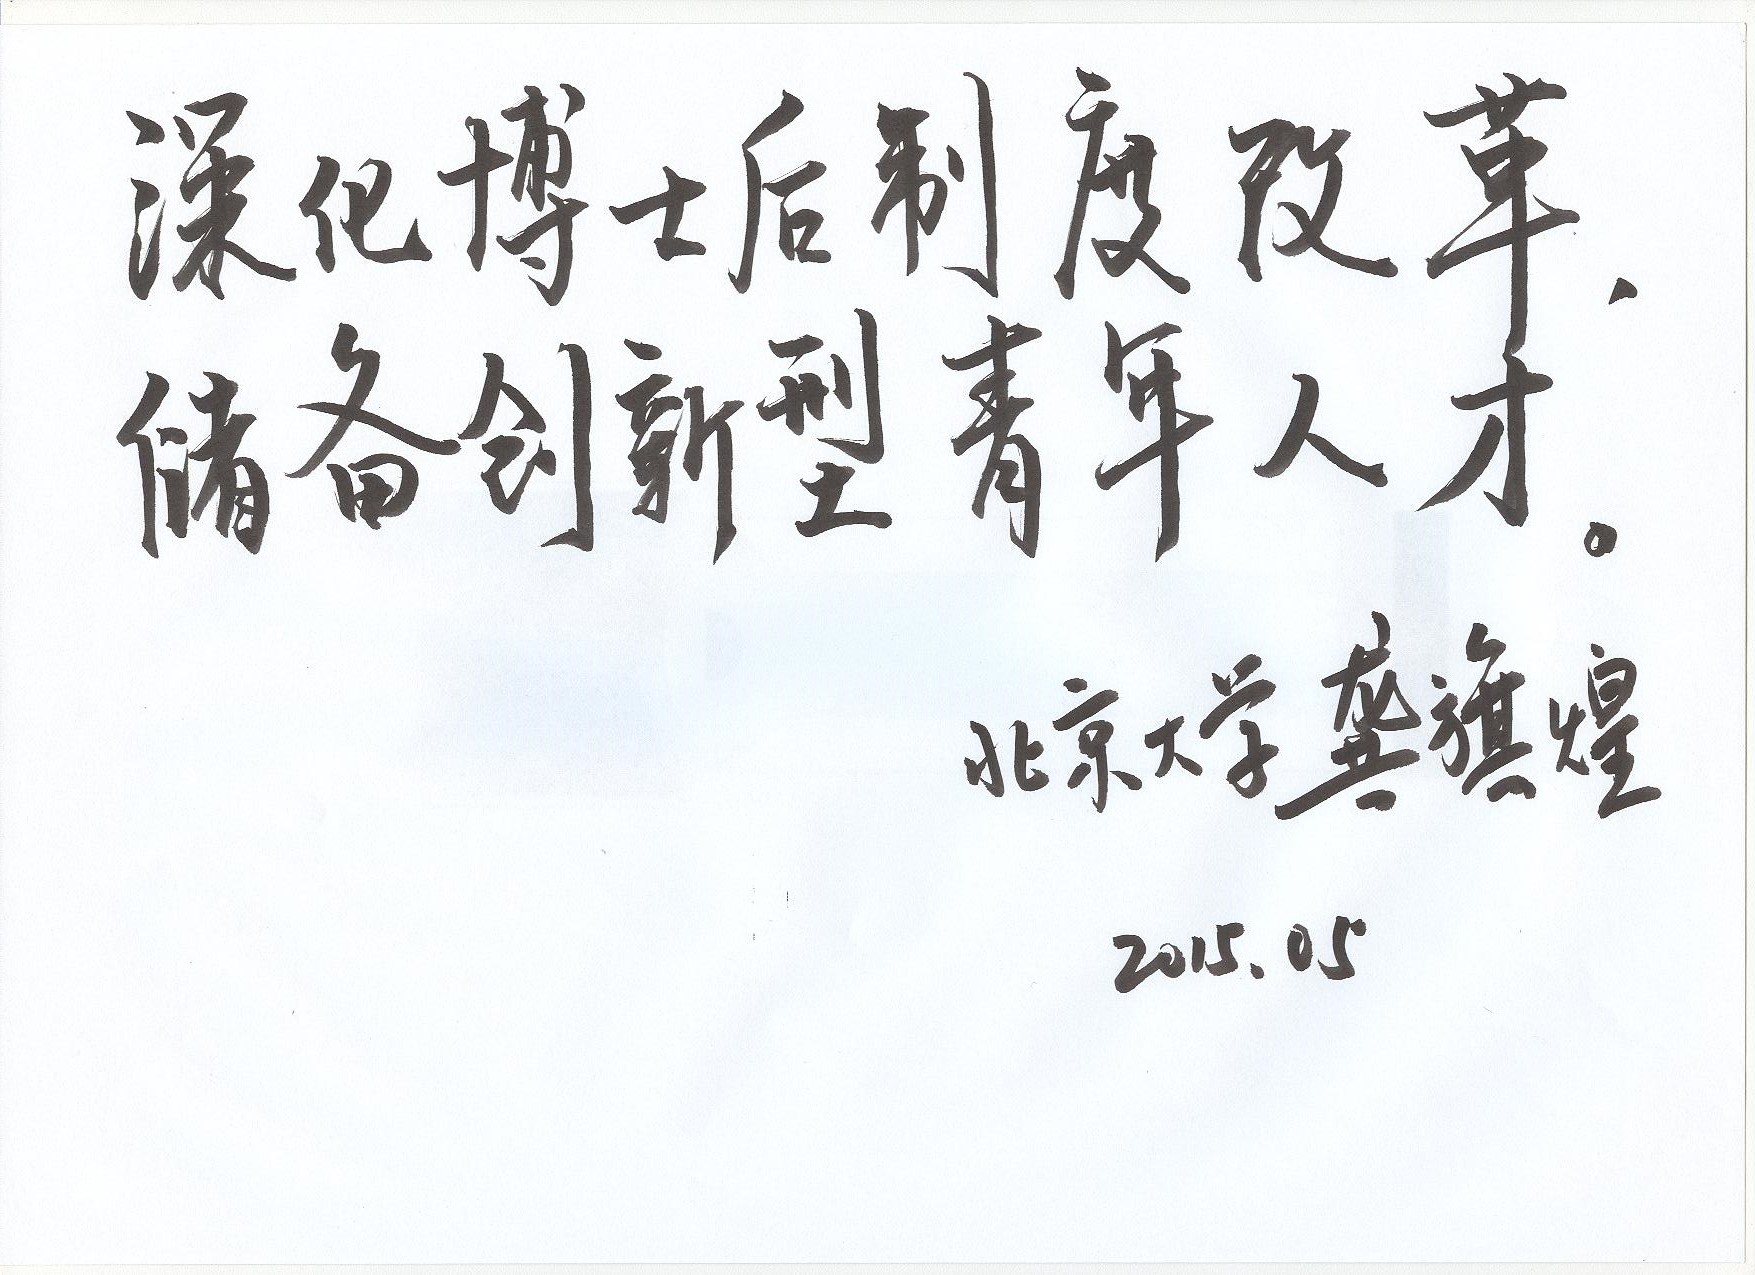 深化博士后制度改革，
储备创新型青年人才。
北京大学龚旗煌
2015.05